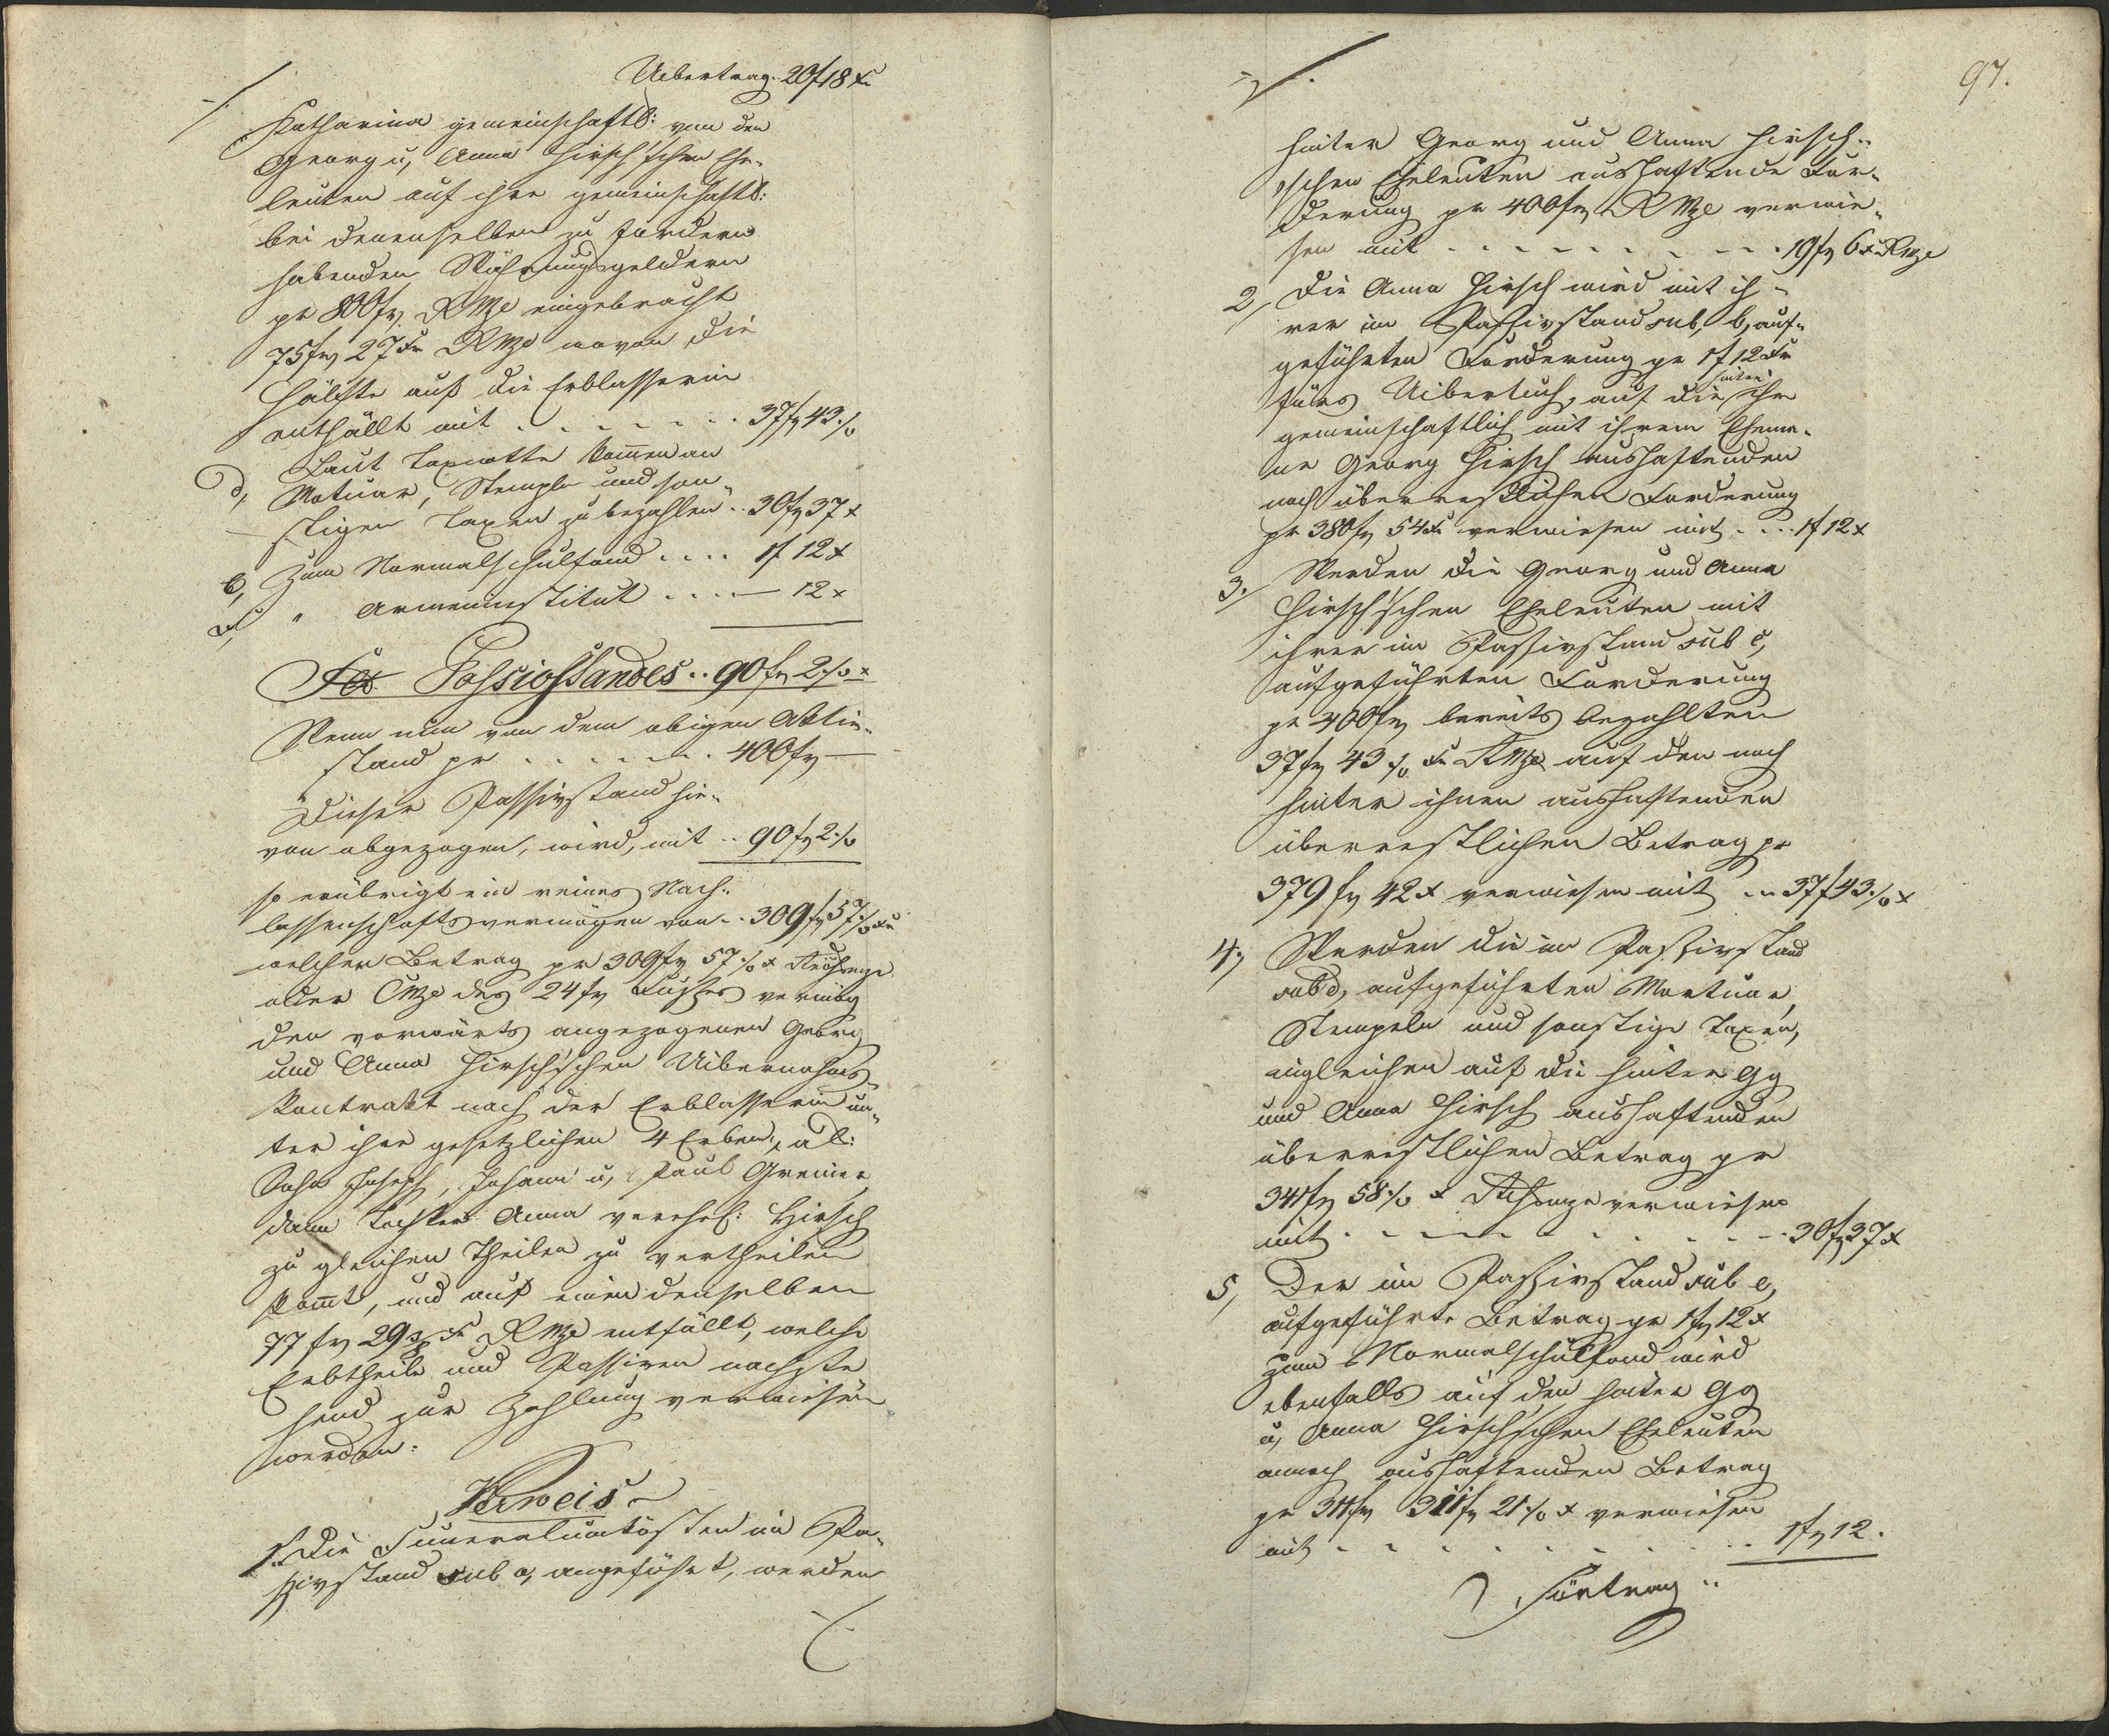 Uibertrag. 20f 18 xr
Katharina gemeinschaftl: von den
Georg u, Anna Hirsch'schen Ehe-
leuten auf ihre gemeinschaftl:
bei denenselben zu fordern
habenden Währungsgeldern
pr 800 fr. RMze eingebracht
75 fr 27 xr RMze wovon die
Hälfte auf die Erblasserin
entfällt mit . . . . . . . 37 fr 43 ./.
d, Laut Taxnotta kommen an
Motuar, Stempln und son-
stigen Taxen zu bezahlen .. 30 fr 37 x
e, Zum Normalschulfond .... 1f 12 x
f, " Armeninstitut .... — 12 x
Passivstandes .. 90 fr 2 ./. x
Wenn nun von dem obigen Aktiv-
stand pr . . . . . . . 400 fr —
Dieser Passivstand hie-
von abgezogen, wird, mit .. 90 fr 2 ./.
so erübrigt ein reines Nach-
lassenschaftsvermögen von .. 309 fr 57 ./. xr
welcher Betrag pr 309 fr 57 ./. x
oder CMze des 24 fr Fußes vermög
den vorwärts angezogenen Georg
und Anna Hirsch'schen Uibernahms-
kontrakt nach der Erblasserin un-
ter ihre gesetzlichen 4 Erben, al:
Sohn Joseph, Johann u, Paul Greiner
dann Tochter Anna verehel: Hirsch
zu gleichen Theilen zu vertheilen
kommt, und auf einen denselben
77 fr 29 xr RMze entfällt, welche
Erbtheile und Passiven nachste-
hend zur Zahlung verwiesen
werden:
Verweis
1. Die Funeralunkösten im Pa-
ssivstand sub a, angeführt, werden
97.
hinter Georg und Anna Hirsch-
'schen Eheleuten aushaftende For-
derung pr 400 fr RMze verwie-
sen mit . . . . . . . . . 19 fr 6 x RMze
2, Die Anna Hirsch wird mit ih-
rer im Passivstand sub, b, auf-
geführten Forderung pr 1f 12 xr
fürs Uibertuch, auf die hinter ihr
gemeinschaftlich mit ihrem Ehema-
ne Georg Hirsch aushaftenden
noch überrestlichen Forderung
pr 380 fr 54 xr verwiesen mit . . . 1f 12 x
3. Werden die Georg und Anna
Hirsch'schen Eheleuten mit
ihrer im Passivstand sub c,
aufgeführten Forderung
pr 400 fr bereits bezahlten
37 fr 43 ./. xr RMze auf den noch
hinter ihnen aushaftenden
überrestlichen Betrag pr
379 fr 42 x verwiesen mit ... 37 f 43 ./. x
4, Werden die im Passivstand
sub d, aufgeführten Mortuar,
Stempeln und sonstige Taxen,
ingleichen auf die hinter Gg
und Anna Hirsch aushaftenden
überrestlichen Betrag pr
341 fr 58 ./. x verwiesen
mit . . . . . . . . . . . 30 fr 37 x
5, Der im Passivstand sub e,
aufgeführte Betrag pr 1 fr 12 x
zum Normalschulfond wird
ebenfalls auf den hinter Gg
u, Anna Hirsch'schen Eheleuten
annoch aushaftenden Betrag
pr 311 fr 311 fr 21 ./. x verwiesen
mit . . . . . . . . . . 1 fr 12.
Fürtrag ..